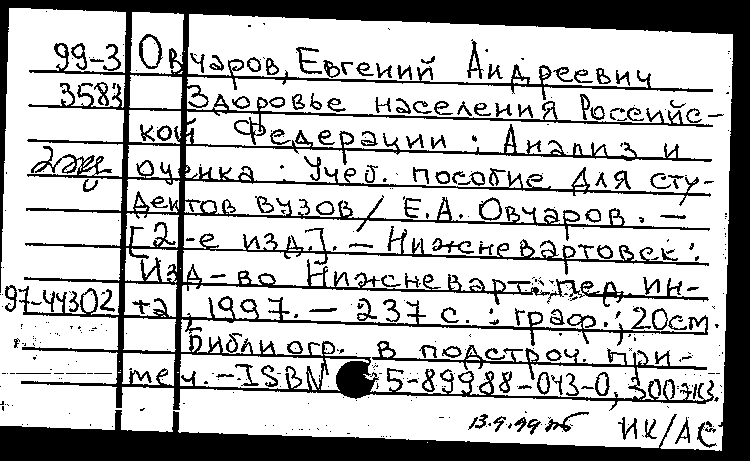 99-3 Овчаров, Евгений Андреевич
3583 Здоровье населения Российс-
кой Федерации : Анализ и
2 экз оценка : Учеб. пособие для сту-
дентов вузов / Е.А. Овчаров. —
[2-е изд.]. — Нижневартовск :
Изд-во Нижневарт. пед. ин-
97-44302 та, 1997. — 237 с. : граф.; 20см.
Библиогр. в подстроч. при-
меч. — ISBN 5-89988-043-0, 300 экз.
13.9.99 ИК/АС